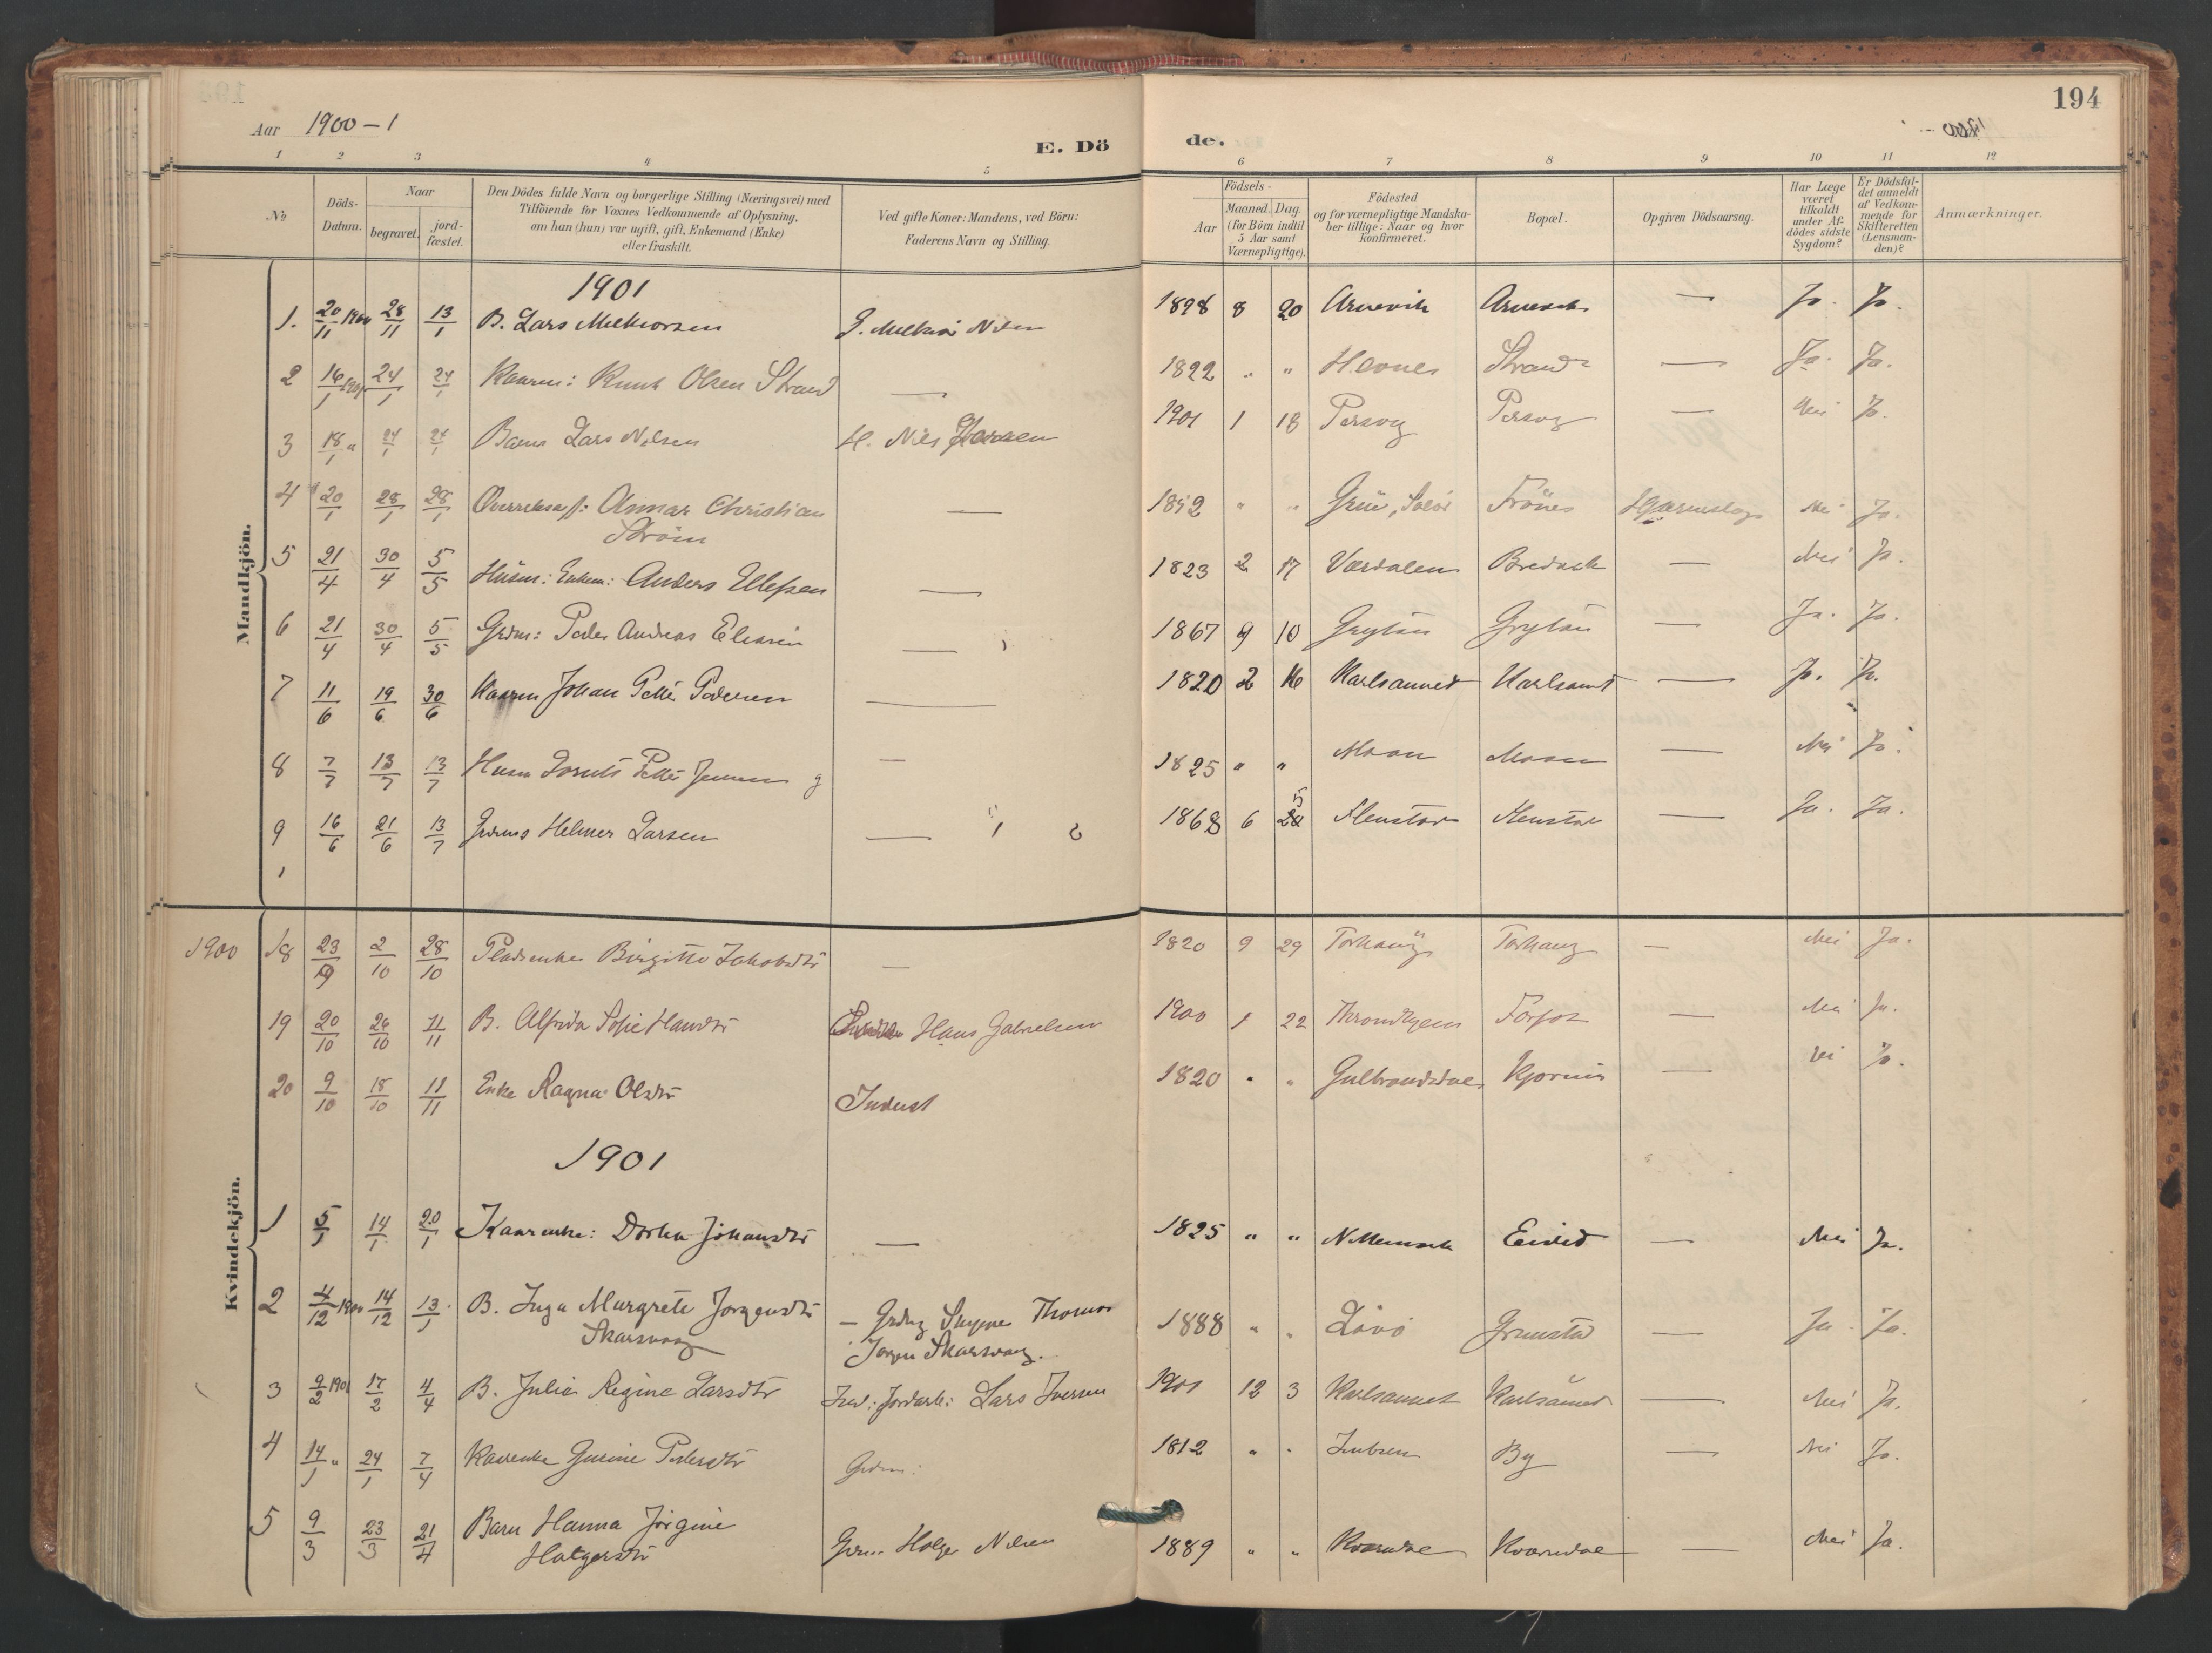 194
Aar 1900-1
E. Dö de.
1900
1 2 3 4 5 6 7 8 9 10 11 12
№
Döds-Datum.
Naar
begravet. jord-fæstet.
Den Dödes fulde Navn og borgerlige Stilling (Næringsvei) med
Tilföiende for Voxnes Vedkommende af Oplysning,
om han (hun) var ugift, gift, Enkemand (Enke)
eller fraskilt.
Ved gifte Koner: Mandens, ved Börn:
Faderens Navn og Stilling.
Födsels-
Aar Maaned. Dag.
(for Börn indtil
5 Aar samt
Værnepligtige).
Födested
og for værnepligtige Mandska-
ber tillige: Naar og hvor
konfirmeret.
Bopæl.
Opgiven Dödsaarsag.
Har Læge
været
tilkaldt
under Af-
dödes sidste
Sygdom?
Er Dödsfal-
det anmeldt
af Vedkom-
mende for
Skifteretten
(Lensman-
den)?
Anmærkninger.
Mandkjön.
1901
1. 20/11 1900 28/11 13/1 B. Lars Melkiorsen G. Melkior Nilsen 1898 8 20 Arnevik Arnevik — Ja. Ja.
2 16/1 1901 24/1 24/1 Kaarm: Knut Olsen Strand — 1822 " " Hevnes Strand — Ja. Ja.
3 18/1 " 24/1 24/1 Barn Lars Nilsen H. Nils Larsen 1901 1 18 Persvg Persvg — Nei Ja.
4 20/1 28/1 28/1 Annar Christian — 1852 " " Grue, Solör Frönes Nei Ja.
Ström
5 21/4 30/4 5/5 Husm: Enkem: Anders Ellefsen — 1823 2 17 Værdalen Bredvik — Nei Ja.
6 21/4 30/4 5/5 Grdm: Peder Andreas — 1867 9 10 Grytan Grytan — Ja. Ja.
7 11/6 19/6 30/6 Kaarm Johan Petter Pedersen — 1820 2 16 Karlsannet Karlsannet — Ja. Ja.
8 7/7 13/7 13/7 Husm Petter Jensen g — 1825 " " Moan Moan — Nei Ja.
9 16/6 21/6 13/7 Grdms Helmer Larsen — 1868 6 25 Flenstad — Ja. Ja.
Kvindekjön.
1900 18 23/9 2/10 28/10 Pladsenke Birgitte Jakobsdtr — 1820 9 29 Torhaug Torhaug — Nei Ja.
19 20/10 26/10 11/11 B. Alfrida Sofie Hansdtr Hans Gabrielsen 1900 1 22 Throndhjem Forfot — Nei Ja.
20 9/10 18/10 11/11 Enke Ragna Olsdtr Inderst 1820 " " Gulbrandsdal — Nei Ja.
1901
1 5/1 14/1 20/1 Kaarenke: Dorthea Johansdtr — 1825 " " Eidid — Nei Ja.
2 4/12 1900 14/12 13/1 B. Inga Margrete Jørgensdtr — Thomas 1888 " " Lövö Grimstad — Ja. Ja.
Skarsvaag Jørgen Skarsvaag.
3 9/2 1901 17/2 4/4 B. Julie Regine Larsdtr Ind: Jordarb: Lars Iversen 1901 12 3 Karlsannet Karlsannet — Nei Ja.
4 14/1 " 24/1 7/4 Kaarenke Gurine Pedersdtr Grdm: 1812 " " By — Nei Ja.
5 9/3 23/3 21/4 Barn Hanna Jørgine Grdm. Holger Nilsen 1889 " " Kvarndal Kvarndal — Nei Ja.
Holgersdtr